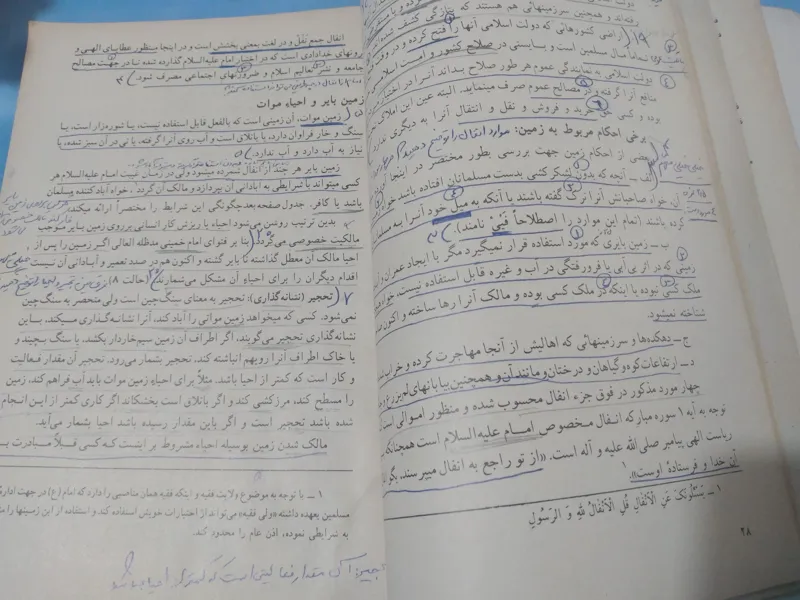 رفته‌اند و همچنین سرزمینهائی هم هستند که
اراضی کشورهائی که دولت اسلامی آنها را فتح کرده و در
شماً مال مسلمین است و بایستی در صلاح کشور و امت اسلامی
دولت اسلامی به نمایندگی عموم هر طور صلاح بداند آنرا در اختیار
منافع آنرا گرفته و در مصالح عموم صرف مینماید. البته عین این املاک
بوده و کسی حق خرید و فروش و نقل و انتقال آنرا به دیگری ندارد
برخی احکام مربوط به زمین: موارد انفال را توضیح دهید
بعضی از احکام زمین جهت بررسی بطور مختصر در اینجا
الف ـ آنچه که بدون لشکرکشی بدست مسلمانان افتاده باشد خواه
آن، خواه صاحبانش آنرا ترک گفته باشند یا آنکه به میل خود آنرا به
کرده باشند (تمام این موارد را اصطلاحاً فَیْئ نامند).
ب ـ زمین بایری که مورد استفاده قرار نمیگیرد مگر با ایجاد عمران و
زمینی که در اثر بی آبی یا فرورفتگی در آب و غیره قابل استفاده نیست، خواه
ملک کسی نبوده یا اینکه در ملک کسی بوده و مالک آنرا رها ساخته و اکنون
شناخته نمیشود.
ج ـ دهکده‌ها و سرزمینهائی که اهالیش از آنجا مهاجرت کرده و خراب
د ـ ارتفاعات کوه و گیاهان و درختان و مانند آن و همچنین بیابانهای لم یزرع
چهار مورد مذکور در فوق جزء انفال محسوب شده و منظور اموالی است
توجه به آیه ۱ سوره مبارکه انفال مخصوص امام علیه السلام است همچنانکه
ریاست الهی پیامبر صلی الله علیه و آله است. «از تو راجع به انفال میپرسند، بگو
آن خدا و فرستادهٔ اوست».۱
۱ ـ یَسْئَلُونَکَ عَنِ الْاَنْفالِ قُلِ الْاَنْفالُ لِلّهِ وَ الرَّسُولِ
۲۸
انفال جمع نَفْل و در لغت بمعنی بخشش است و در اینجا منظور عطایای الهی و
ثروتهای خدادادی است که در اختیار امام علیه السلام گذارده شده تا در جهت مصالح
جامعه و نشر تعالیم اسلام و ضرورتهای اجتماعی مصرف شود.
زمین بایر و احیاء موات
زمین موات، آن زمینی است که بالفعل قابل استفاده نیست، یا شوره‌زار است، یا
سنگ و خار فراوان دارد، یا باتلاق است و آب روی آنرا گرفته، یا نی در آن سبز شده، یا
نیاز به آب دارد و آب ندارد.
زمین بایر هر چند از انفال شمرده میشود ولی در زمان غیبت امام علیه السلام هر
کسی میتواند با شرایطی به آبادانی آن بپردازد و مالک آن گردد، خواه آباد کننده مسلمان
باشد یا کافر. جدول صفحه بعد چگونگی این شرایط را مختصراً ارائه میکند.
بدین ترتیب روشن میشود احیاء یا ریزش کار انسانی بر روی زمین بایر موجب
مالکیت خصوصی می‌گردد. (بنا بر فتوای امام خمینی مدظله العالی اگر زمین را پس از
احیا مالک آن معطل گذاشته تا بایر گشته و اکنون هم در صدد تعمیر و آبادانی آن نیست
اقدام دیگران را برای احیاء آن مشکل می‌شمارند) (حالت ۸)
تحجیر (نشانه گذاری): تحجیر به معنای سنگ چین است ولی منحصر به سنگ چین
نمی‌شود. کسی که میخواهد زمین مواتی را آباد کند، آنرا نشانه گذاری میکند. به این
نشانه گذاری تحجیر می‌گویند. اگر اطراف آن زمین سیم خاردار بکشد، یا سنگ بچیند و
یا خاک اطراف آنرا رویهم انباشته کند، تحجیر بشمار می‌رود. تحجیر آن مقدار فعالیت
و کار است که کمتر از احیا باشد. مثلاً برای احیاء زمین موات باید آب فراهم کند، زمین
را مسطح کند، مرزکشی کند و اگر باتلاق است بخشکاند اگر کاری کمتر از این انجام
شده باشد تحجیر است و اگر باین مقدار رسیده باشد احیا بشمار می‌آید.
مالک شدن زمین بوسیله احیاء مشروط بر اینست که کسی قبلاً مبادرت به
۱ ـ با توجه به موضوع ولایت فقیه و اینکه فقیه همان مناصبی را دارد که امام (ع) در جهت اداره
مسلمین بعهده داشته «ولی فقیه» می‌تواند از اختیارات خویش استفاده کند و استفاده از این زمینها را
به شرایطی نموده، اذن عام را محدود کند.
تحجیر: آن مقدار فعالیتی است که کمتر از احیا باشد